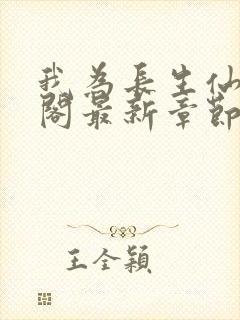 我為長生仙
閣最新章節
王全穎